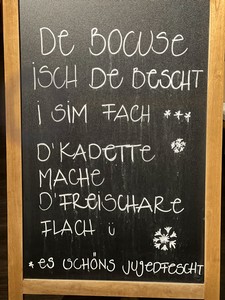 DE BOCUSE
iSCH DE BESCHT
i SiM FACH ***
D'KADETTE
MACHE
D'FREISCHARE
FLACH ü
*ES SCHÖNS JUGEDFESCHT